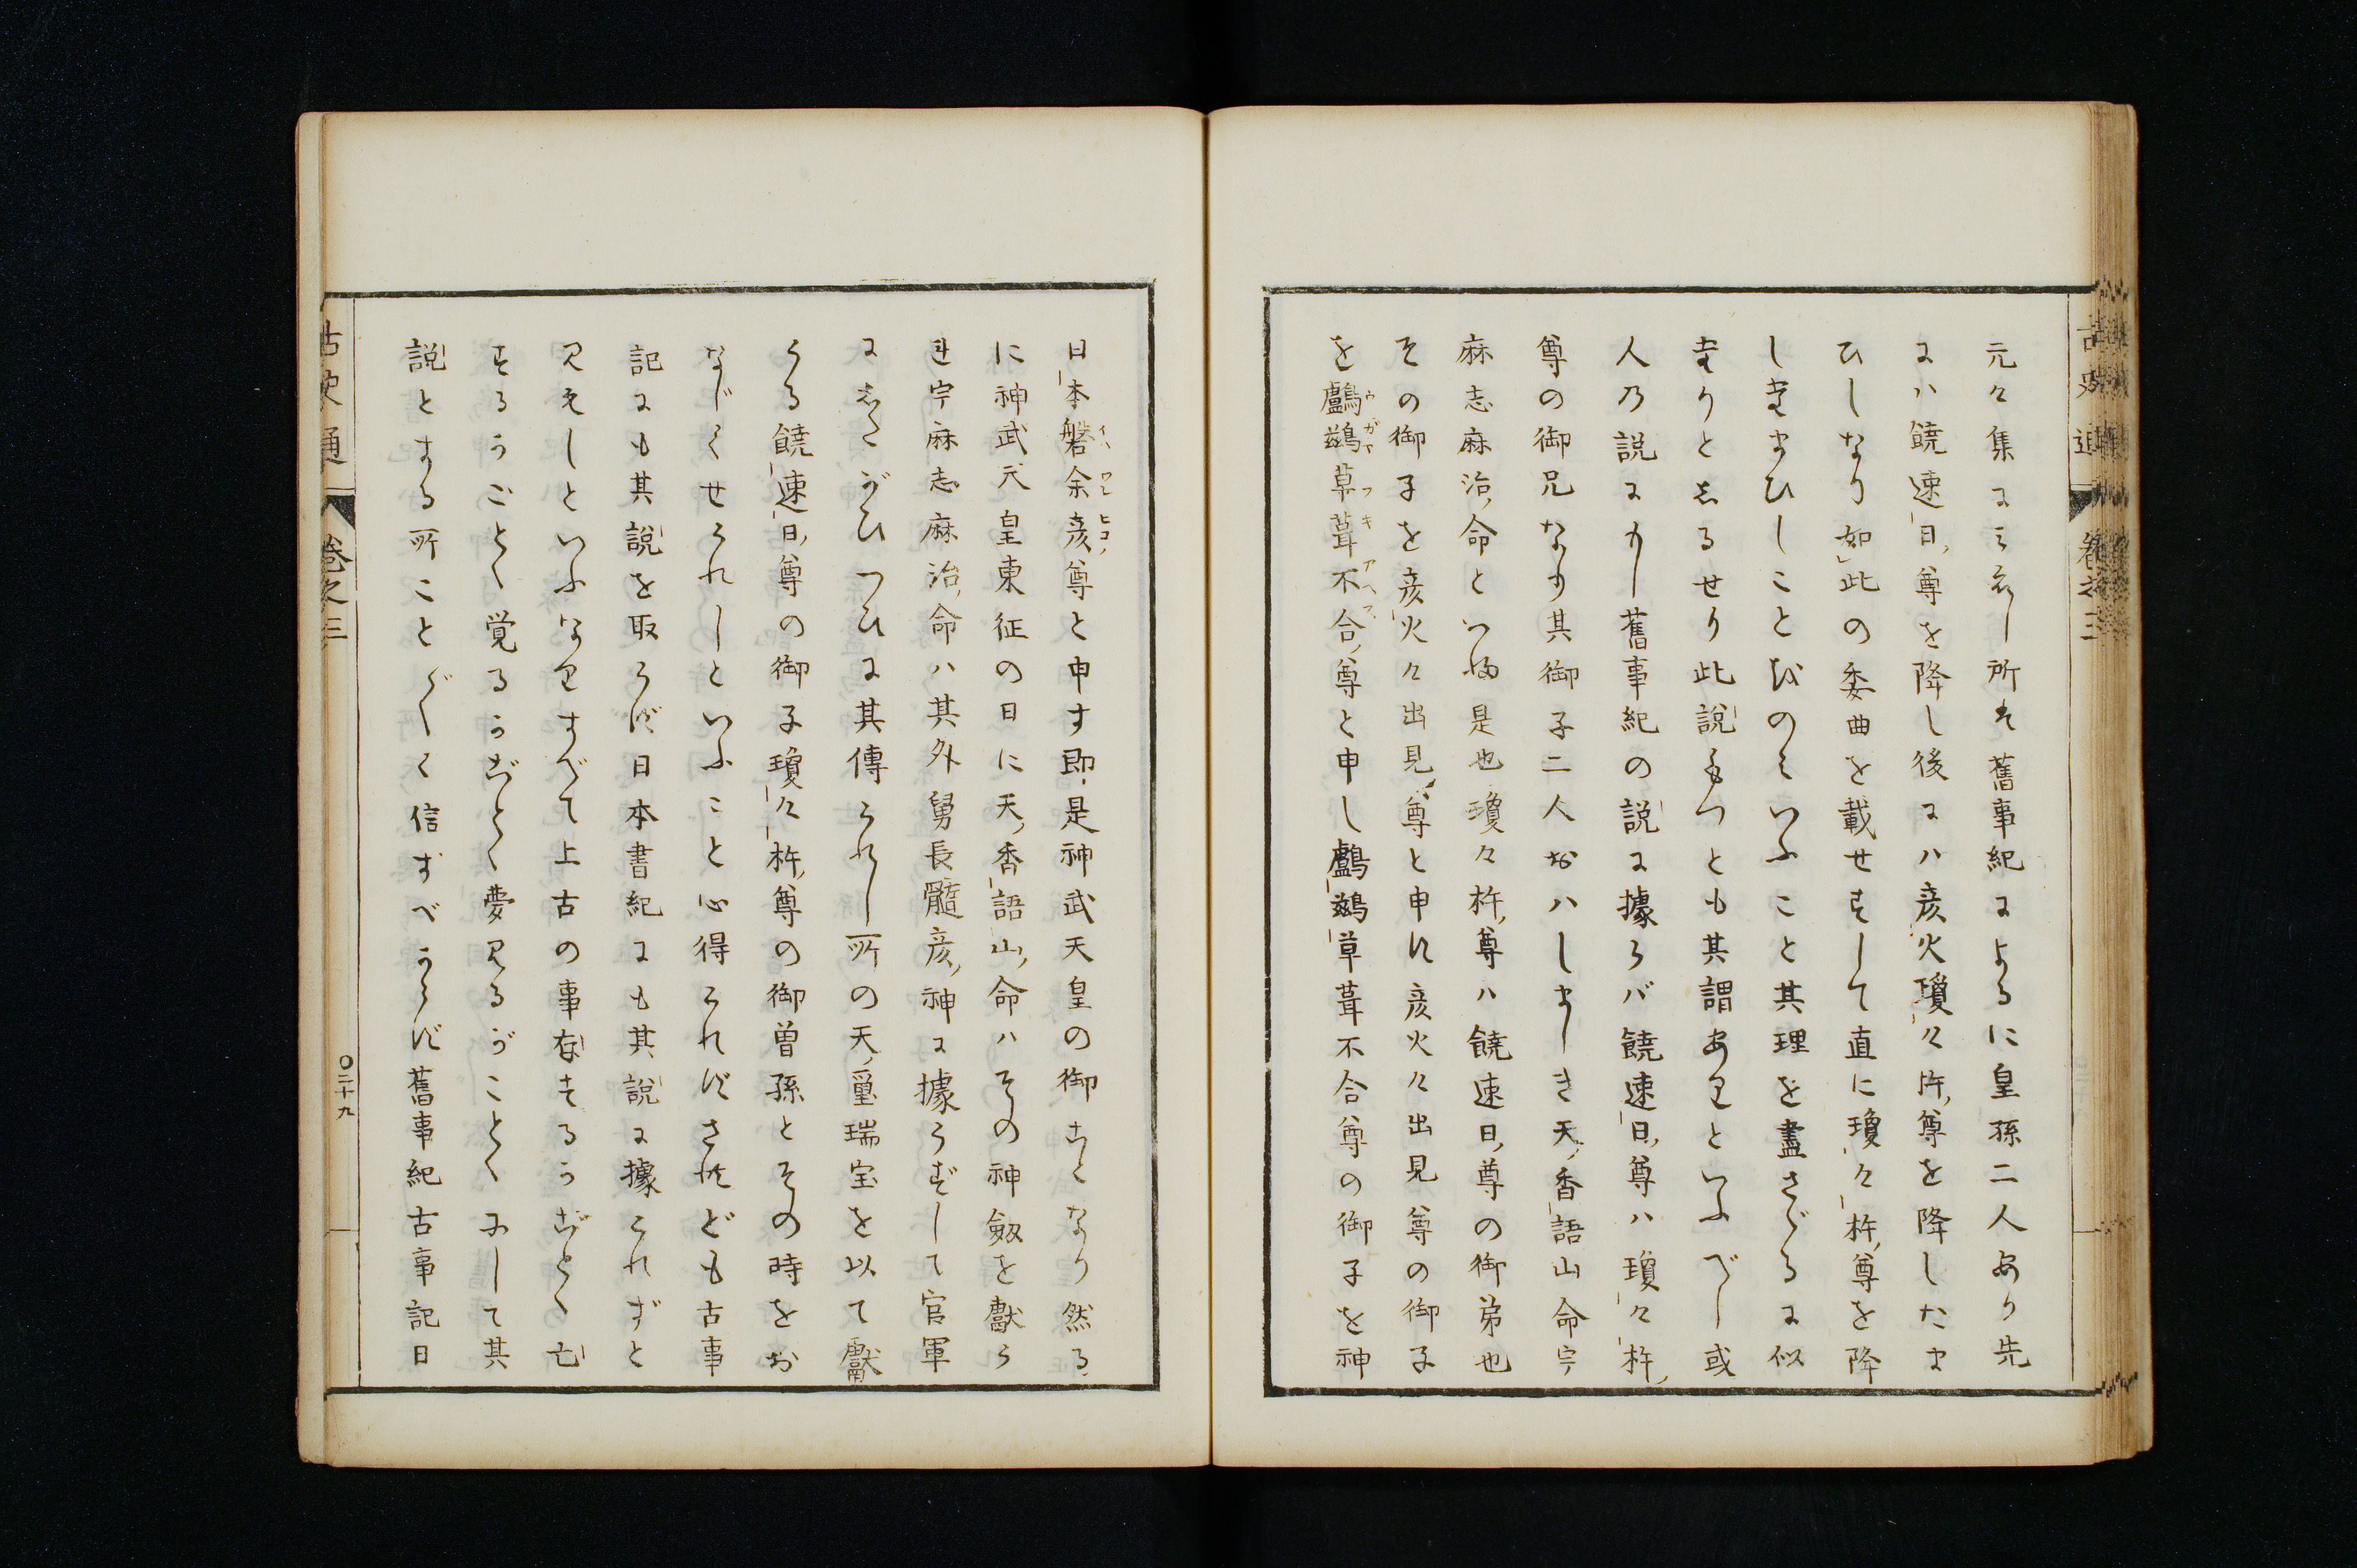 古史通 卷之三
元々集にみえし所は舊事紀によるに皇孫二人あり先
には饒速日尊を降し後には彦火瓊々杵尊を降したま
ひしなり如此の委曲を載せずして直に瓊々杵尊を降
したまひしことをのみいふこと其理を盡さゞるに似
たりとしるせり此説もつとも其謂ありといふべし或
人乃説にもし舊事紀の説に據らバ饒速日尊ハ瓊々杵
尊の御兄なり其御子二人おハしましき天香語山命宇
麻志麻治命といふ是也瓊々杵尊ハ饒速日尊の御弟也
その御子を彦火々出見尊と申す彦火々出見尊の御子
を鸕鷀草葺不合尊と申し鸕鷀草葺不合尊の御子を神
ウガヤフキアヘズ
日本磐余彦尊と申す即是神武天皇の御ことなり然る
イハワレヒコノ
に神武天皇東征の日に天香語山命ハその神劔を獻ら
れ宇麻志麻治命ハ其外舅長髓彦神に據らずして官軍
にしたがひつひに其傳られし所の天璽瑞宝を以て獻
らる饒速日尊の御子瓊々杵尊の御曽孫とその時をお
なじくせられしといふこと心得られずされども古事
記にも其説を取らず日本書紀にも其説に據られずと
見えしといふなりすべて上古の事存するかごとく亡
するかごとく覚るかごとく夢見るがことくにして其
説とする所ことごとく信ずべからず舊事紀古事記日
古史通 卷之三 〇二十九